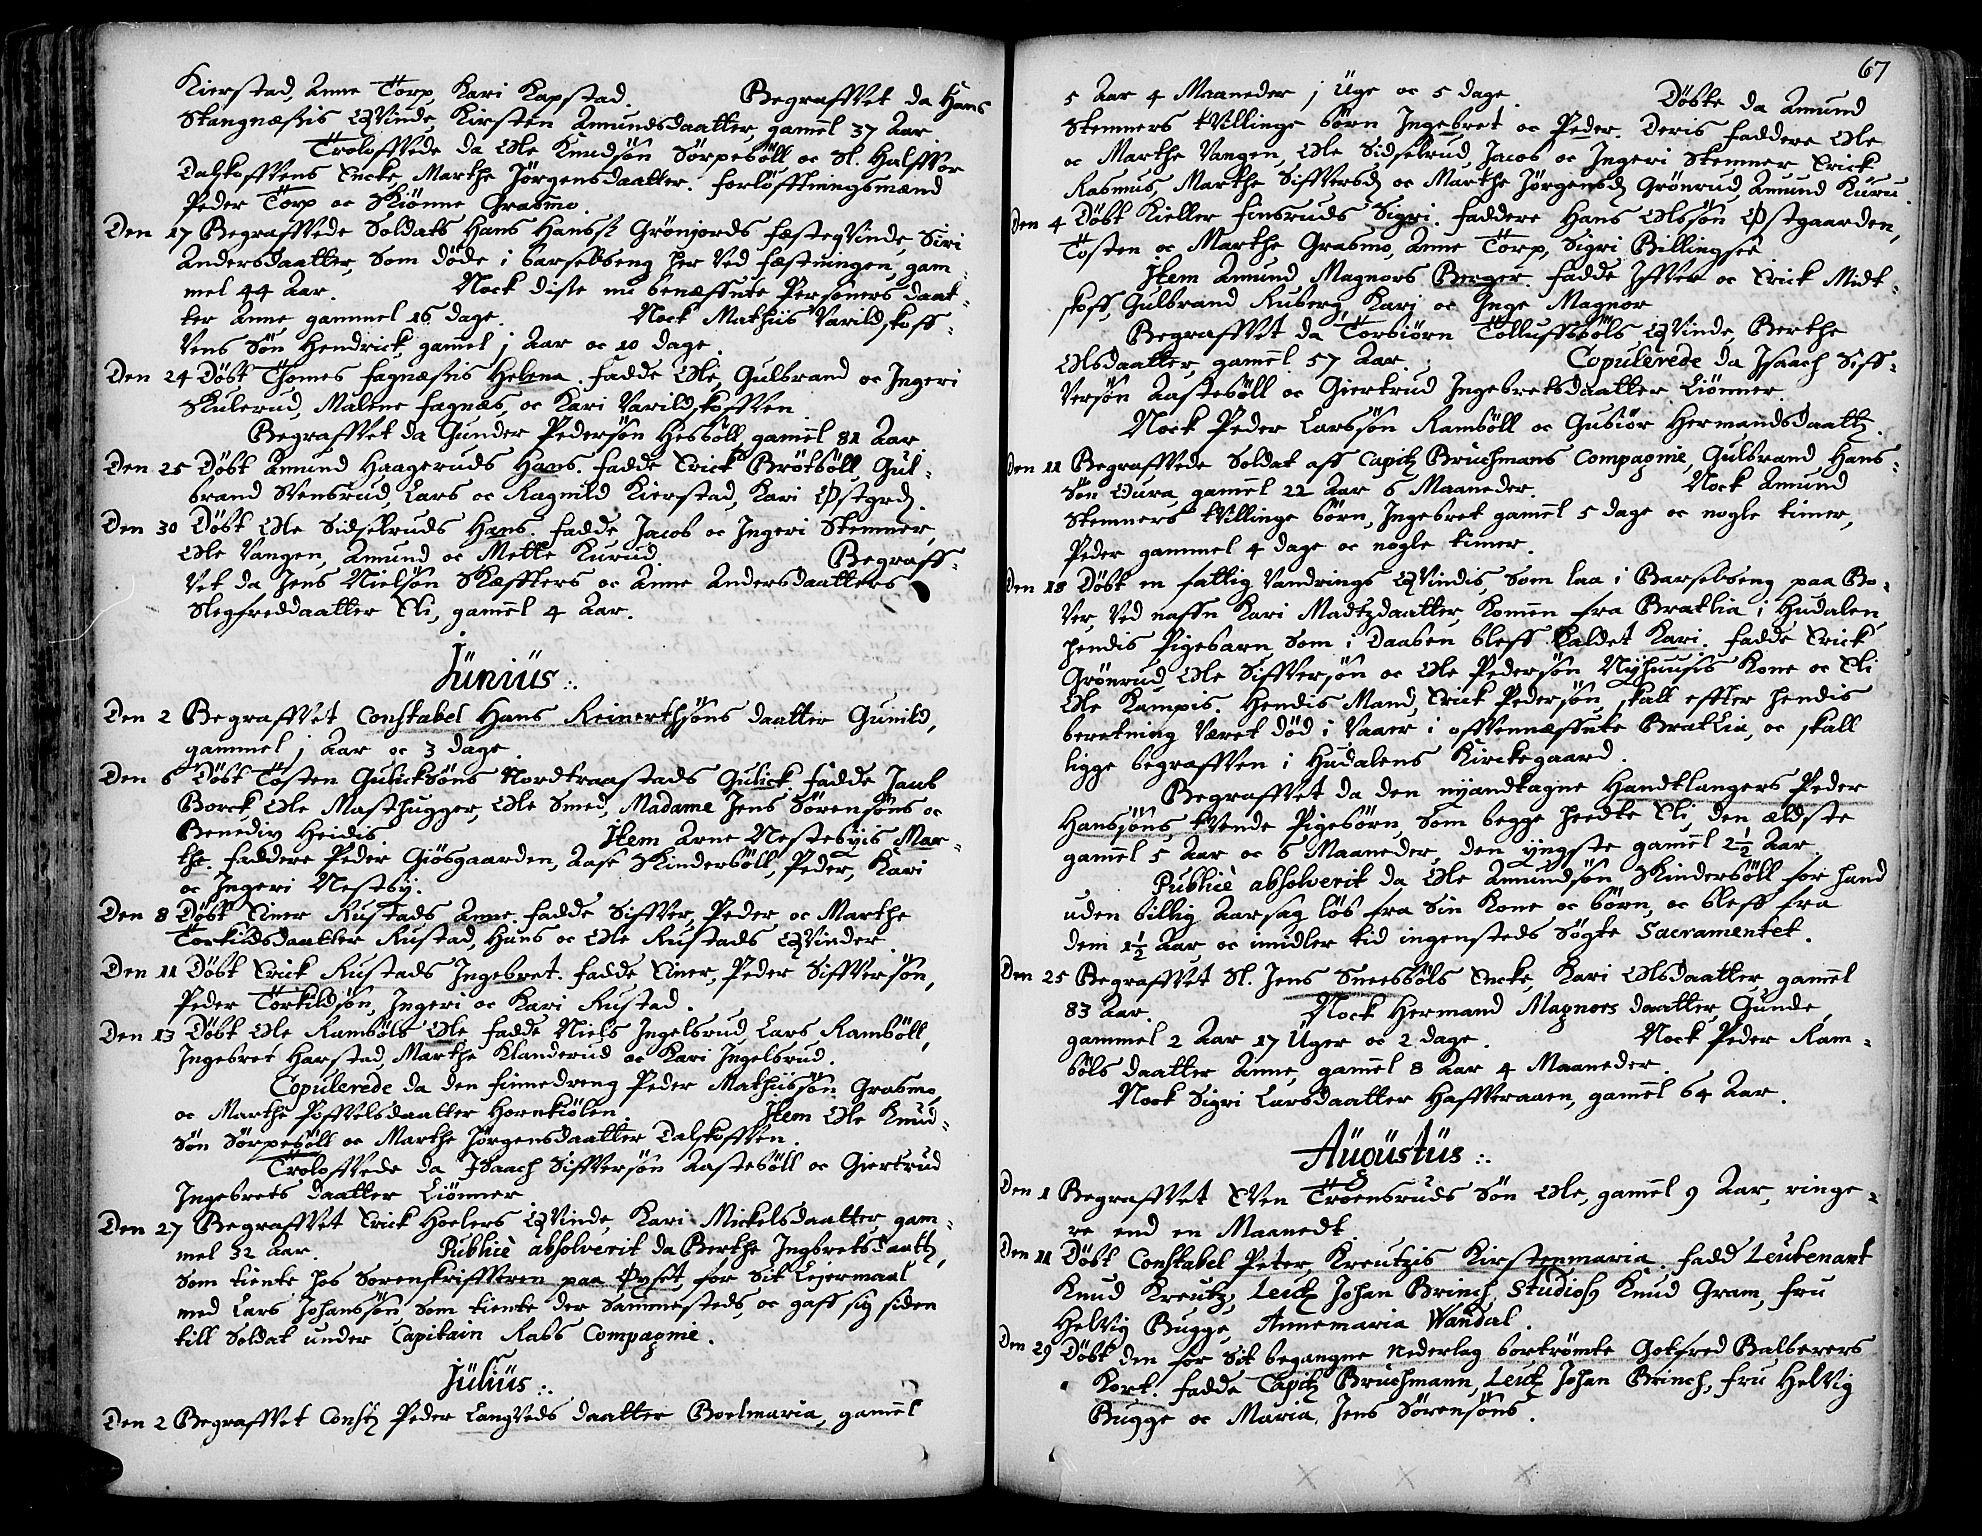 Kierstad, Anne Torp, Kari Kapstad. Begraffvet da Hans
Stangnæssis Qvinde, Kirsten Amundsdaatter, gamel 37 Aar
Troloffvede da Ole Knudsøn Sørpebøll oc Sl. Halffvor
Dalskoffvens Encke, Marthe Jørgensdaatter. forlöfftningsmænd
Peder Torp oc Skiönne Grasmo.
Den 17 Begraffvede Soldats Hans Hanssis Grönjords fæsteqvinde, Siri
Andersdaatter, som döde i barselseng her ved fæstningen, gam-
mel 44 Aar. Nock diste nu benæffnte Personers daat-
ter Anne gammel 16 dage. Nock Mathiis Varildskoff-
vens Sön Hendrick, gamel j Aar oc 10 dage.
Den 24 Döbt Thomes fagnæssis Helena. fadde Ole, Gulbrand oc Ingeri
Skulerud, Malene fagnæs, oc Kari Varildskoffven
Begraffvet da Gunder Pedersön Hesböll, gamel 81 Aar
Den 25 Döbt Amund Haageruds Hans. fadde Erick Brötböll, Gul-
brand Svensrud, Lars oc Ragnild Kierstad, Kari Östgrd.
Den 30 Döbt Ole Sidselruds Hans. fadde Jacob oc Ingeri Skemner,
Ole Vangen, Amund oc Mette Kurud. Begraff-
vet da Jens Nielsön Skæffters oc Anne Andersdaatters
Slegfreddaatter Eli, gamel 4 Aar.
Jünius :.
Den 2 Begraffvet Constabel Hans Reinerthsöns daatter Gunild,
gammel j Aar oc 3 dage.
Den 6 Döbt Tösten Gulicksöns Nordtraastads Gulick. fadde Jacob
Borck, Ole Masthugger, Ole Smed, Madame Jens Sörensöns oc
Benedix Heidis Item Arne Nestebyis Mar-
the. faddere Peder Giösgaarden, Aase Skinderböll, Peder, Kari
oc Ingeri Nestby.
Den 8 Döbt Einer Rustads Anne. fadde Siffver, Peder oc Marthe
Torkildsdaatter Rustad, Hans oc Ole Rustads Qvinder.
Den 11 Döbt Erick Rustads Ingebret. fadde Einer, Peder Siffversön,
Peder Torkildsön, Ingeri oc Kari Rustad.
Den 13 Döbt Ole Ramböls Ole. fadde Niels Ingelsrud, Lars Ramböll,
Ingebret Harstad, Marthe Klanderud oc Kari Ingelsrud.
Copulerede da den finnedreng Peder Mathiissön Grasmo,
oc Marthe Poffvelsdaatter Hornkiölen. Item Ole Knud-
sön Sörpeböll oc Marthe Jörgensdaatter Dalskoffven.
Troloffvede da Isaach Siffversön Aasteböll oc Giertrud
Ingebrets daatter Liönner
Den 27 Begraffvet Erick Hoelers Qvinde, Kari Mickelsdaatter, gam-
mel 32 Aar. Publicè absolverit da Berthe Ingbretsdaattr,
som tiente hos Sorenskriffveren paa Öyset, for sit Leiermaal
med Lars Johanssön, som tiente der sammesteds, oc gaff sig siden
till Soldat under Capitain Rabs Compagnie.
Jülius :.
Den 2 Begraffvet Const Peder Langveds daatter Boelmaria, gamel
67
5 Aar 4 Maaneder j Uge oc 5 dage. Döbte da Amund
Skemners tvillinge börn Ingebret oc Peder. Deris faddere Ole
oc Marthe Vangen, Ole Sidselrud, Jacob oc Ingeri Skemner, Erick
Rasmus, Marthe Siffversd oc Marthe Jörgensd Grönrud, Amund Kuru.
Den 4 Döbt Kieller finsruds Sigri. faddere Hans Olssön Östgaarden,
Tosten oc Marthe Grasmo, Anne Torp, Sigri Billingsee
Item Amund Magnors Berger. fadde Iffver oc Erick Midt-
skoff, Gulbrand Ruberg, Kari oc Inge Magnor
Begraffvet da Torbiörn Tolluffsböls Qvinde, Berthe
Olsdaatter, gamel 57 Aar. Copulerede da Isaach Siff-
versön Aasteböll oc Giertrud Ingebretsdaatter Liönner.
Nock Peder Larssön Ramböll oc Gubiör Hermandsdaattr.
Den 11 Begraffvede Soldat aff Capit Bruchmans Compagnie, Gulbrand Hans-
sön Oura, gamel 22 Aar 6 Maaneder. Nock Amund
Skemners tvillinge börn, Ingebret gamel 5 dage oc nogle timer,
Peder gammel 4 dage oc nogle timer.
Den 18 Döbt en fattig Vandrings Qvindis, som laa i Barselseng paa Bo-
ver, ved naffn Kari Madtzdaatter, komen fra Bratlia i Hudalen,
hendis Pigebarn, som i Daaben bleff kaldet Kari. fadde Erick
Grönrud, Ole Siffversön oc Ole Pedersön Nyhuusis Kone oc Eli
Ole Kampis. Hendis Mand, Erick Pedersön, skall effter hendis
beretning været död i Vaaer i offvennæffnte Bratlia, oc skall
ligge begraffven i Hudalens Kirckegaard.
Begraffvet da den nyandtagne Handtlangers Peder
Hansöns tvende Pigebörn, som begge heedte Eli, den ældste
gamel 5 Aar oc 6 Maaneder, den yngste gamel 2½ Aar.
Publicè absolverit da Ole Amundsön Skinderböll for hand
uden billig Aarsag löb fra sin Kone oc börn, oc bleff fra
dem 1½ Aar oc imidler tid ingensteds sögte Sacramentet.
Den 25 Begraffvet Sl. Jens Sneesböls Encke, Kari Olsdaatter, gamel
83 Aar. Nock Hermand Magnors daatter, Gunde,
gammel 2 Aar 17 Uger oc 2 dage. Nock Peder Ram-
böls daatter Anne, gamel 8 Aar 4 Maaneder.
Nock Sigri Larsdaatter Haffveraaen, gamel 64 Aar.
Augüstüs :.
Den 1 Begraffvet Even Troensruds Sön Ole, gamel 9 Aar, ringe-
re end en Maanedt
Den 11 Döbt Constabel Peter Kreutzis Kirstenmaria. fadd Leutenant
Knud Kreutz, Leut Johan Brinch, Studios Knud Gram, fru
Helvig Bugge, Annemaria Wandal.
Den 29 Döbt den for sit begangne Nederlag bortrömte Gotfred Balberers
Kort. fadde Capit Bruchmann, Leut Johan Brinch, fru Helvig
Bugge oc Maria Jens Sörensöns.